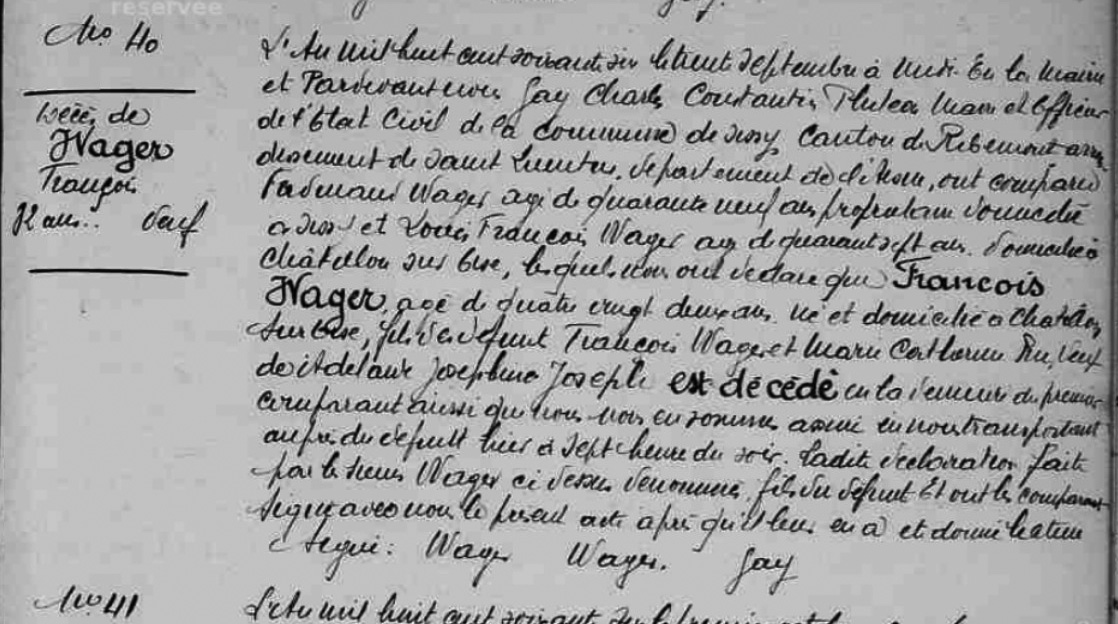 reservee
No 40
Décès de
Wager
François
82 ans.. Veuf
L'An mil huit cent soixante six le trente Septembre à Midi. En la Mairie
et Pardevant nous Gay Charles Constantin Maire et Officier
de l'Etat Civil de la commune de Sissy Canton de Ribemont arron
dissement de Saint Quentin, département de l'Aisne, ont comparu
Ferdinand Wager agé de quarante neuf ans propriétaire domicilié
a Sissy et Louis François Wager agé de quarante sept ans. domicilié à
Châtillon sur Oise, lesquels nous ont déclaré que François
Wager, agé de quatre vingt deux ans né et domicilié a Chatillon
Sur Oise, fils des défunt François Wager et Marie Catherine veuf
de Adelaide Josephine Joseph est décédé en la demeure du premier
comparant ainsi que nous nous en sommes assuré en nous transportant
auprès du défunt hier à Sept heure du soir. Ladite déclaration faite
par les sieurs Wager ci dessus dénommé, fils du défunt Et ont les comparant
Signé avec nous le présent acte après qu'il leur en a été donné lecture
Signé: Wager Wager. Gay
No 41
L'An mil huit cent soixante six le premier